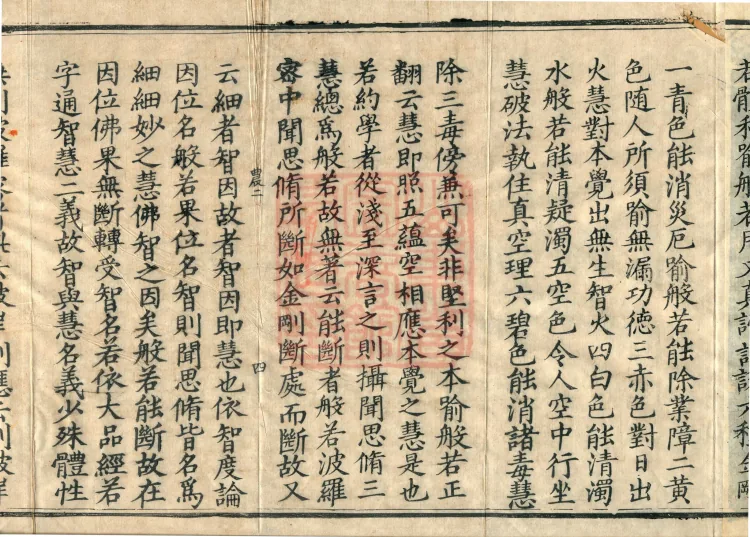 若體利喻般若用文真諦
一青色能消災厄喻般若能除業障二黃
色随人所須喻無漏功德三赤色對日出
火慧對本覺出無生智火四白色能清濁
水般若能清疑濁五空色令人空中行坐
慧破法執住真空理六碧色能消諸毒慧
除三毒傍兼可矣非堅利之本喻般若正
翻云慧即照五蘊空相應本覺之慧是也
若約學者從淺至深言之則攝聞思脩三
慧總爲般若故無著云能斷者般若波羅
宻中聞思脩所斷如金剛斷處而斷故又
農二
四
云細者智因故者智因即慧也依智度論
因位名般若果位名智則聞思脩皆名爲
細細妙之慧佛智之因矣般若能斷故在
因位佛果無斷轉受智名若依大品經若
字通智慧二義故智與慧名義少殊體性